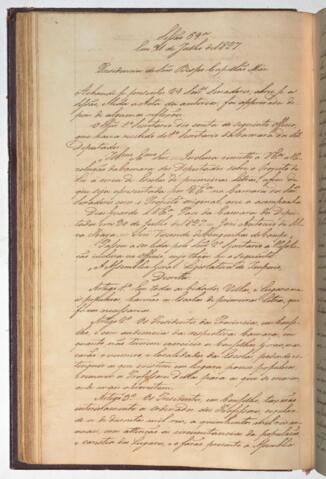 Sessão 64ª
Em 21 de Julho de 1827
Presidencia do Snr. Bispo Capellão Mór
Achando-se presentes 29 Snrs. Senadores, abrio-se a
Sessão, e lida a Acta da anterior, foi approvada de-
pois de alguma reflexão.
O Snr. 1º Secretario deo conta do seguinte Officio,
que havia recebido do 1º Secretario da Camara dos Snrs.
Deputados.
Illmo. e Exmo. Snr. Inclusa remetto a V. Exª a Re-
solução da Camara dos Deputados sobre o Projecto de
Lei a cerca de Escolas de primeiras letras, a fim de
que seja apresentada por V. Exª na Camara dos Snrs.
Senadores com o Projecto original, que a acompanha.
Deos guarde a V. Exª Paço da Camara dos Depu-
tados em 20 de Julho de 1827 José Antonio da
Snr. Visconde de
Passou a ser lida pelo Snr. 2º Secretario a Resolu-
ção inclusa no Officio, cujo theor he o seguinte
A Assembléa Geral Legislativa do Imperio
Decreta
Artigo 1º Em todas as Cidades, Villas, e Lugares ma-
is populosos, haverão as Escolas de primeiras letras, que
forem necessarias.
Artigo 2º Os Presidentes das Provincias, em Conse-
lho, e com audiencia das respectivas Camaras, em
quanto não tiverem exercicio os Conselhos Geraes, mar-
carão o numero, e localidades das Escolas, podendo ex-
tinguir as que existem em lugares pouco populosos,
e remover os Professores dellas para as que se crearem
onde mais aproveitem.
Artigo 3º Os Presidentes, em Conselho, taxarão
interinamente os ordenados dos Professores, regulan-
do-os de duzentos mil reis, a quinhentos mil reis an-
nuaes, com attenção ás circunstancias da população
e carestia dos Lugares, e o farão presente á Assembléa